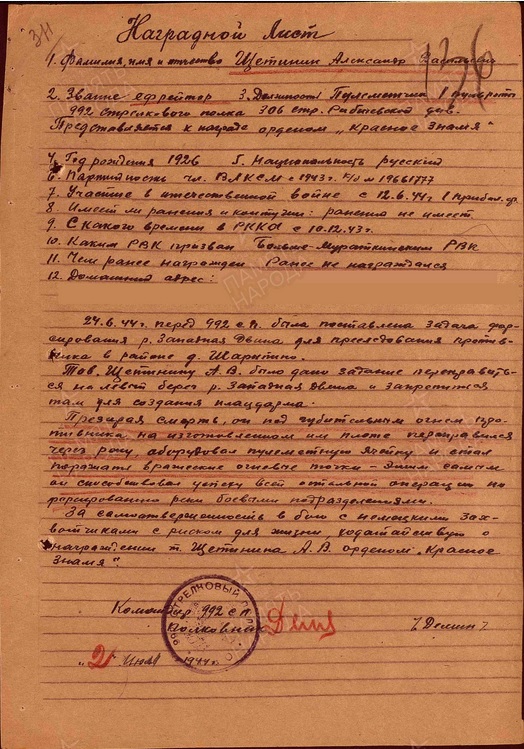 Наградной Лист
1. Фамилия, имя и отчество Щетинин Александр Васильевич
2. Звание ефрейтор 3. Должность Пулеметчик 1 пульроты
992 стрелкового полка 306 стр. Рибшевской див.
Представляется к награде орденом „Красное Знамя"
4. Год рождения 1926 5. Национальность русский
6. Партийность чл. ВЛКСМ с 1943 г. №19661777
7. Участие в отечественной войне с 12.6.44 г 1 прибал. фр.
8. Имеет ли ранения и контузии: ранений не имеет
9. С какого времени в РККА с 10.12.43 г.
10. Каким РВК призван Больше-Мурашкинским РВК
11. Чем ранее награжден Ранее не награждался
12. Домашний адрес:
24.6.44 г. перед 992 с.п. была поставлена задача фор-
сирования р. Западная Двина для преследования против-
ника в районе д. Шарыпино.
Тов. Щетинину А.В. было дано задание переправить-
ся на левый берег р. Западная Двина и закрепиться
там для создания плацдарма.
Презирая смерть, он под губительным огнем про-
тивника на изготовленном им плоте переправился
через реку, оборудовал пулеметную ячейку и стал
поражать вражеские огневые точки - Этим самым
он способствовал успеху всей остальной операции по
форсированию реки боевыми подразделениями.
За самоотверженность в бою с немецкими зах-
ватчиками с риском для жизни, ходатайствую о
награждении т. Щетинина А.В. орденом „Красное
Знамя"
Командир 992 с.п.
Полковник / Демин /
„2" Июля 1944 г.